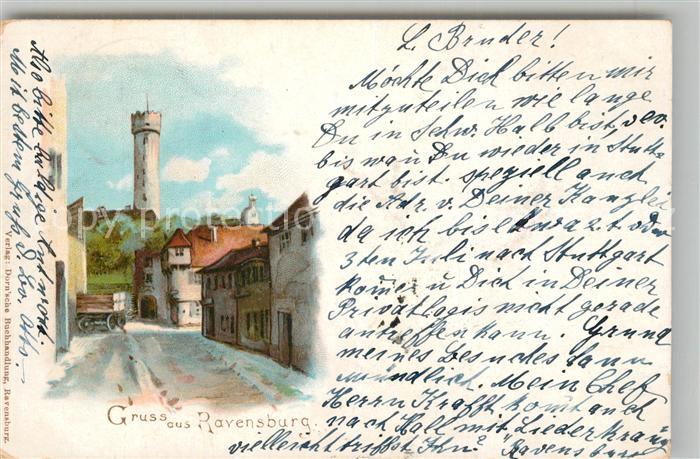 L. Bruder!
Möchte Dich bitten mir
mitzuteilen wie lange
Du in Schw. Hall bist, resp.
bis wan Du wieder in Stutt-
gart bist. speziell auch
die Adr. v. Deiner Kanzlei
da ich bis
3ten Juli nach Stuttgart
komme u Dich in Deiner
Privatlogis nicht gerade
antreffen kann. Grund
meines Besuches dann
mündlich. Mein Chef
Herrn Krafft komt auch
nach Hall mit "Liederkranz
vielleicht triffst Ihn? "Ravensburg
Also bitte Antwort.
Mit bestem Gruß D. Br. Otto
Gruss aus Ravensburg.
Verlag: Dorn'sche Buchhandlung, Ravensburg.